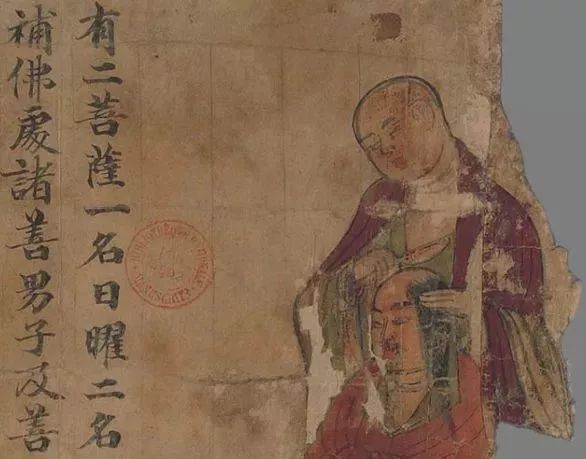 有二菩薩一名日曜二名
補佛處諸善男子及善